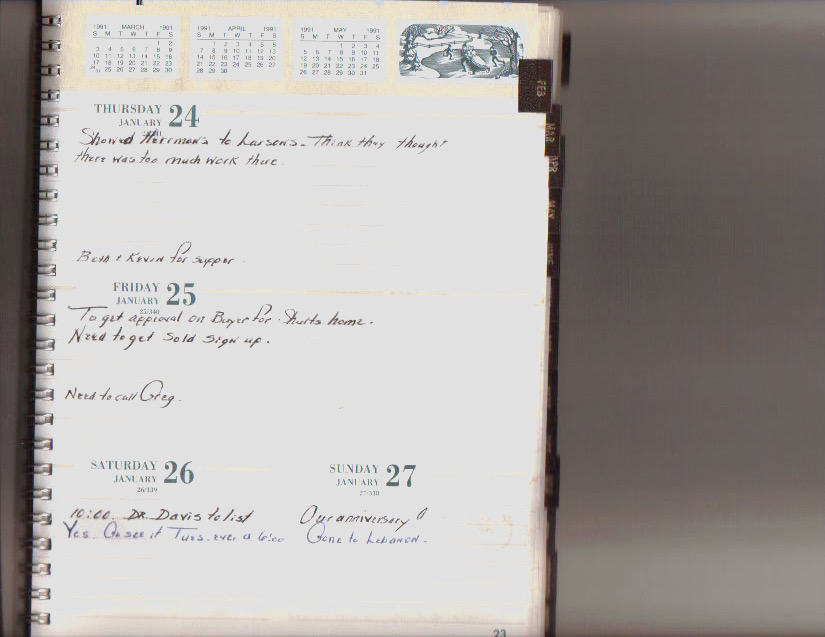 1991 MARCH 1991
S M T W T F S
1 2
3 4 5 6 7 8 9
10 11 12 13 14 15 16
17 18 19 20 21 22 23
24/31 25 26 27 28 29 30
1991 APRIL 1991
S M T W T F S
1 2 3 4 5 6
7 8 9 10 11 12 13
14 15 16 17 18 19 20
21 22 23 24 25 26 27
28 29 30
1991 MAY 1991
S M T W T F S
1 2 3 4
5 6 7 8 9 10 11
12 13 14 15 16 17 18
19 20 21 22 23 24 25
26 27 28 29 30 31
FEB
MAR
APR
MAY
JUNE
THURSDAY 24
JANUARY
Showed Herrman's to Larsons - Think they thought
there was too much work there.
Beth & Kevin for supper
FRIDAY 25
JANUARY
25/340
To get approval on Buyer for Shults home.
Need to get Sold sign up.
Need to call Greg.
SATURDAY 26
JANUARY
26/339
10:00. DR. Davis to list
Yes. Go see it Tues. eve. @ 6:00
SUNDAY 27
JANUARY
27/338
Our anniversary
Gone to Lebanon.
23